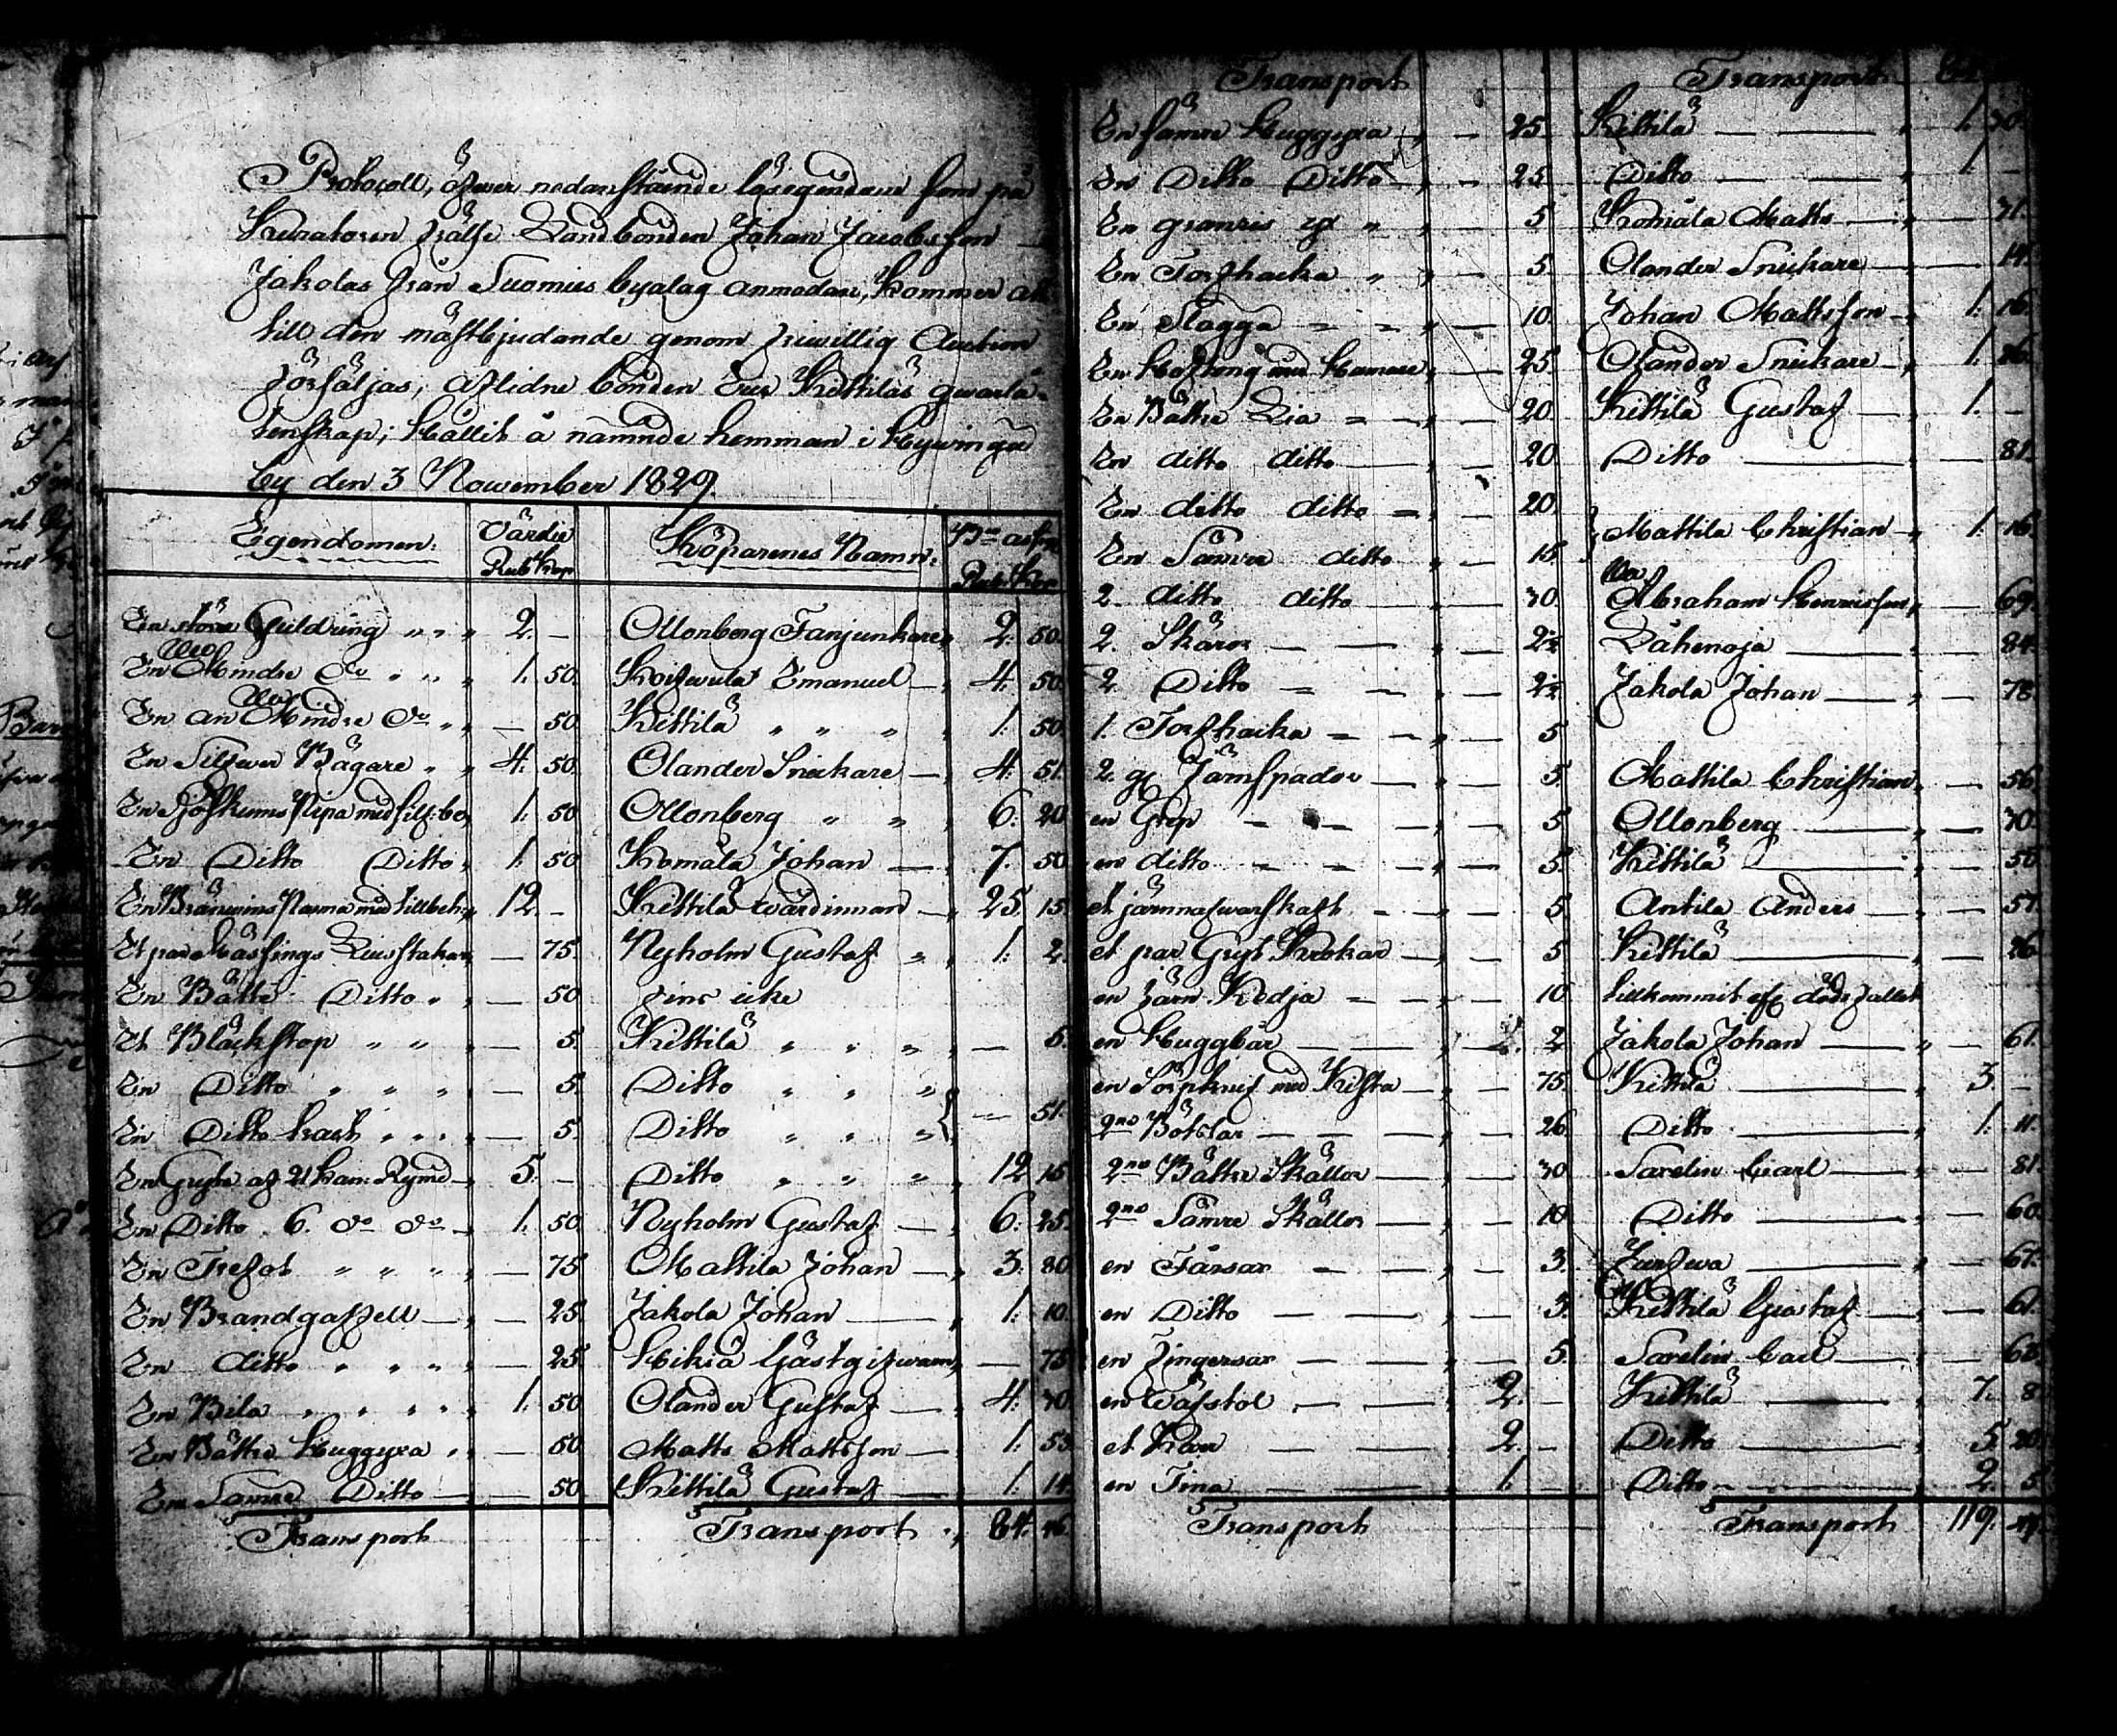 Protocoll, öfwer nedanstående lösegendom som på
Kuratoren Frälse Landbonden Johan Jacobsson
Jakolas från Suomies byalag anmodan, kommer at
till den mästbjudande genom friwillig Auction
försäljas, aflidne bonden Kittiläs qwarlå-
tenskap; Hållit å nämnde hemman i Hywinge
by den 3 November 1829.
Egendomen: Värdie Köparenes Namn:
Rub Kop Rub Kop
En störe Guldring 2. - Ollonberg Fanjunkare 2. 50.
En Mindre Do 1. 50. Emanuel 4. 50.
En än Mindre Do - 50 Kittilä 1. 50.
En Silfwer Bägare 4. 50. Olander Snickare 4. 51.
En Sjöskums Pipa med silf: be 1. 50 Ollonberg 6. 20
En Ditto Ditto 1. 50 Komäla Johan 7. 50
En Bränwins Panna med tillbeh. 12. - Kittilä wärdinnan 25. 15.
Et par Mässings Liusstakar - 75. Nyholm Gustaf 1. 2.
En Bättre Ditto - 50 fins icke
Et Bläckstop - 5. Kittilä - 5.
En Ditto - 5. Ditto
En Ditto - 5. Ditto - 51.
En Gryta af 21 kan: Rymd 5. - Ditto 12 15
En Ditto 6. do do 1. 50. Nyholm Gustaf 6. 25.
En Trefot - 75 Mattila Johan 3. 80
En Brandgaffell - 25 Jakola Johan 1. 10.
En ditto - 25 Hikiä Gästgifwaren - 75
En Bila 1. 50 Olander Gustaf 4. 30.
En Bättre Huggyxa - 50 Matts Mattsson 1. 53.
En Sämre Ditto - 50 Kittilä Gustaf 1. 14.
Transport Transport 64. 46.
Transport Transport
En sämre Huggyxa - 25 Kittilä 1. 30.
En Ditto Ditto - 25 Ditto 1. -
En granris yx - 5 Komäla Matts - 31.
En Torfhacka - 5 Olander Snickare - 14.
En Slägga - 10. Johan Mattsson 1. 16.
En Hoftång med Hamare - 25 Olander Snickare 1. 26.
En Bättre Lia - 20 Kittilä Gustaf 1. -
En ditto ditto - 20 Ditto - 81.
En ditto ditto - 20.
Mattila Christian 1. 16.
En Sämre ditto - 15.
2. ditto ditto - 30. Abraham Henricsson - 69.
2. Skäror - 2½ Lähenoja - 84.
2 Ditto - 2½ Jakola Johan - 78.
1. Torfhacka - 5
2. Järnspador - 5. Mattila Christian - 56.
en Grep - 5 Ollonberg - 30.
en ditto - 5. Kittilä - 50
et - 5 Antila Anders - 57.
et par Gryt Krokar - 5 Kittilä - 26
en Järn Kedja - 10 tillkommit dödsfallet
en - 2 Jakola Johan - 61.
en med Kista - 75. Kittilä 3. -
2ne Böttlar - 26 Ditto 1. 11.
2ne Bättre Skällor - 30 Sarelin Carl - 81.
2ne Sämre Skällor - 10 Ditto - 60.
en Fårsax - 3. - 67.
en Ditto - 3. Kittilä Gustaf - 61.
en Fingersax - 5. Sarelin Carl - 62.
en Wäfstol 2. - Kittilä 7. 8
et 2. - Ditto 5. 20.
en Tina 1. - Ditto 2. 5
Transport Transport 119.